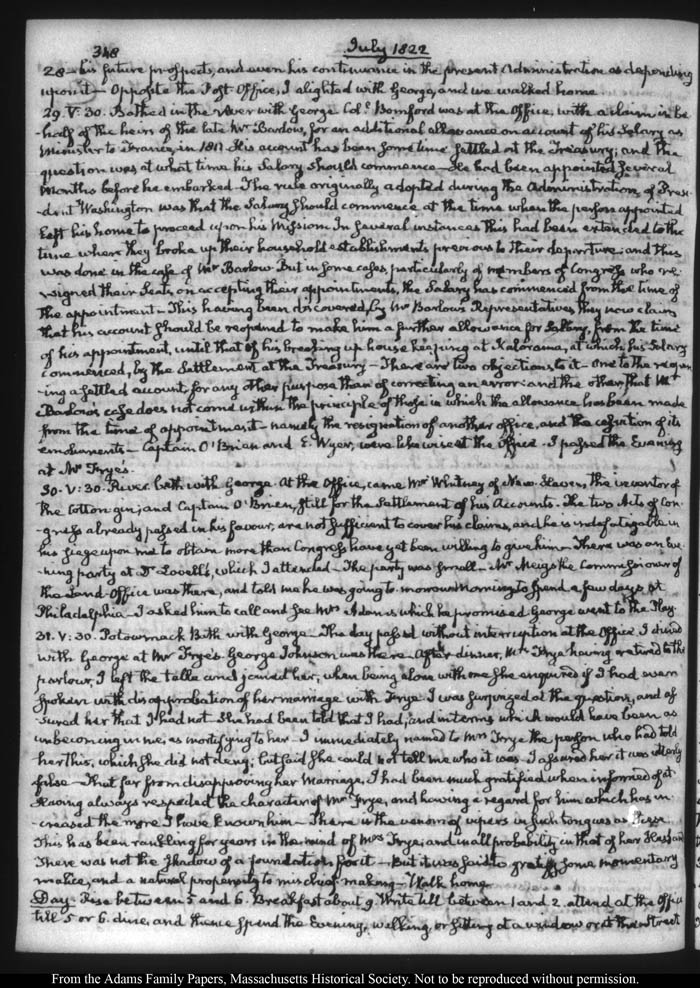 348
July 1822
28 — his future prospects, and even his continuance in the present Administration as depending
upon it — Opposite the Post-Office, I alighted with George, and we walked home.
29. V: 30. Bathed in the river with George Colᶫ Bomford was at the Office, with a claim in be-
half of the heirs of the late Mr Barlow, for an additional allowance on account of his Salary as
Minister to France, in 1811. His account has been some time settled at the Treasury; and the
question was at what time his Salary should commence — He had been appointed several
months before he embarked. The rule originally adopted during the Administration, of Presi-
-dent Washington was that the Salary should commence at the time when the person appointed
left his home to proceed upon his Mission. In several instances this had been extended to the
time when they broke up their household establishments previous to their departure; and this
was done in the case of Mr Barlow. But in some cases, particularly of members of Congress who re-
-signed their Seats, on accepting their appointments, the Salary has commenced from the time of
the appointment — This having been discovered, by Mr Barlow's Representatives, they now claim
that his account should be reopened to make him a further allowance for Salary, from the time
of his appointment, until that of his breaking up house keeping at Kalorama, at which his Salary
commenced, by the Settlement at the Treasury — There are two objections to it — One to the reopen-
ing a settled account for any other purpose than of correcting an error: and the other that Mr
Barlow's case does not come within the principle of those in which the allowance has been made
from the time of appointment — namely the resignation of another office, and the cessation of its
emoluments — Captain O'Brien and E. Wyer, were likewise at the Office. I passed the Evening
at Mr Frye's.
30. V: 30. River bath with George. At the Office, came Mr Whitney of New-Haven, the inventor of
the Cotton gin; and Captain O'Brien, still for the Settlement of his Accounts. The two Acts of Con-
-gress already passed in his favour, are not sufficient to cover his claims, and he is indefatigable in
his siege upon me to obtain more than Congress have yet been willing to give him — There was an Eve-
-ning party at Dr Lovell's, which I attended — The party was small — Mr Meigs the Commissioner of
the Land-Office was there, and told me he was going to-morrow Morning to spend a few days at
Philadelphia — I asked him to call and see Mrs Adams which he promised. George went to the Play.
31. V: 30. Potowmack Bath with George — The day passed without interruption at the Office. I dined
with George at Mr Frye's. George Johnson was there. After dinner, Mrs Frye having retired to the
parlour, I left the table and joined her, when being alone with me she enquired if I had ever
spoken with disapprobation of her marriage with Frye. I was surprized at the question, and as-
sured her that I had not. She had been told that I had; and in terms which would have been as
unbecoming in me, as mortifying to her. I immediately named to Mrs Frye the person who had told
her this, which she did not deny; but said she could not tell me who it was. I assured her it was utterly
false — That far from disapproving her Marriage, I had been much gratified when informed of it
Having always respected the character of Mr Frye, and having a regard for him which has in-
-creased the more I have known him — There is the venom of vipers in such tongues as
This has been rankling for years in the mind of Mrs Frye; and in all probability in that of her Husband
There was not the shadow of a foundation for it — But it was said to gratify some momentary
malice, and a natural propensity to mischief-making — Walk home.
Day. Rise between 5 and 6. Breakfast about 9. Write till between 1 and 2. attend at the Office
till 5 or 6. dine, and thence spend the Evening, walking, or sitting at a window or at the Street
From the Adams Family Papers, Massachusetts Historical Society. Not to be reproduced without permission.